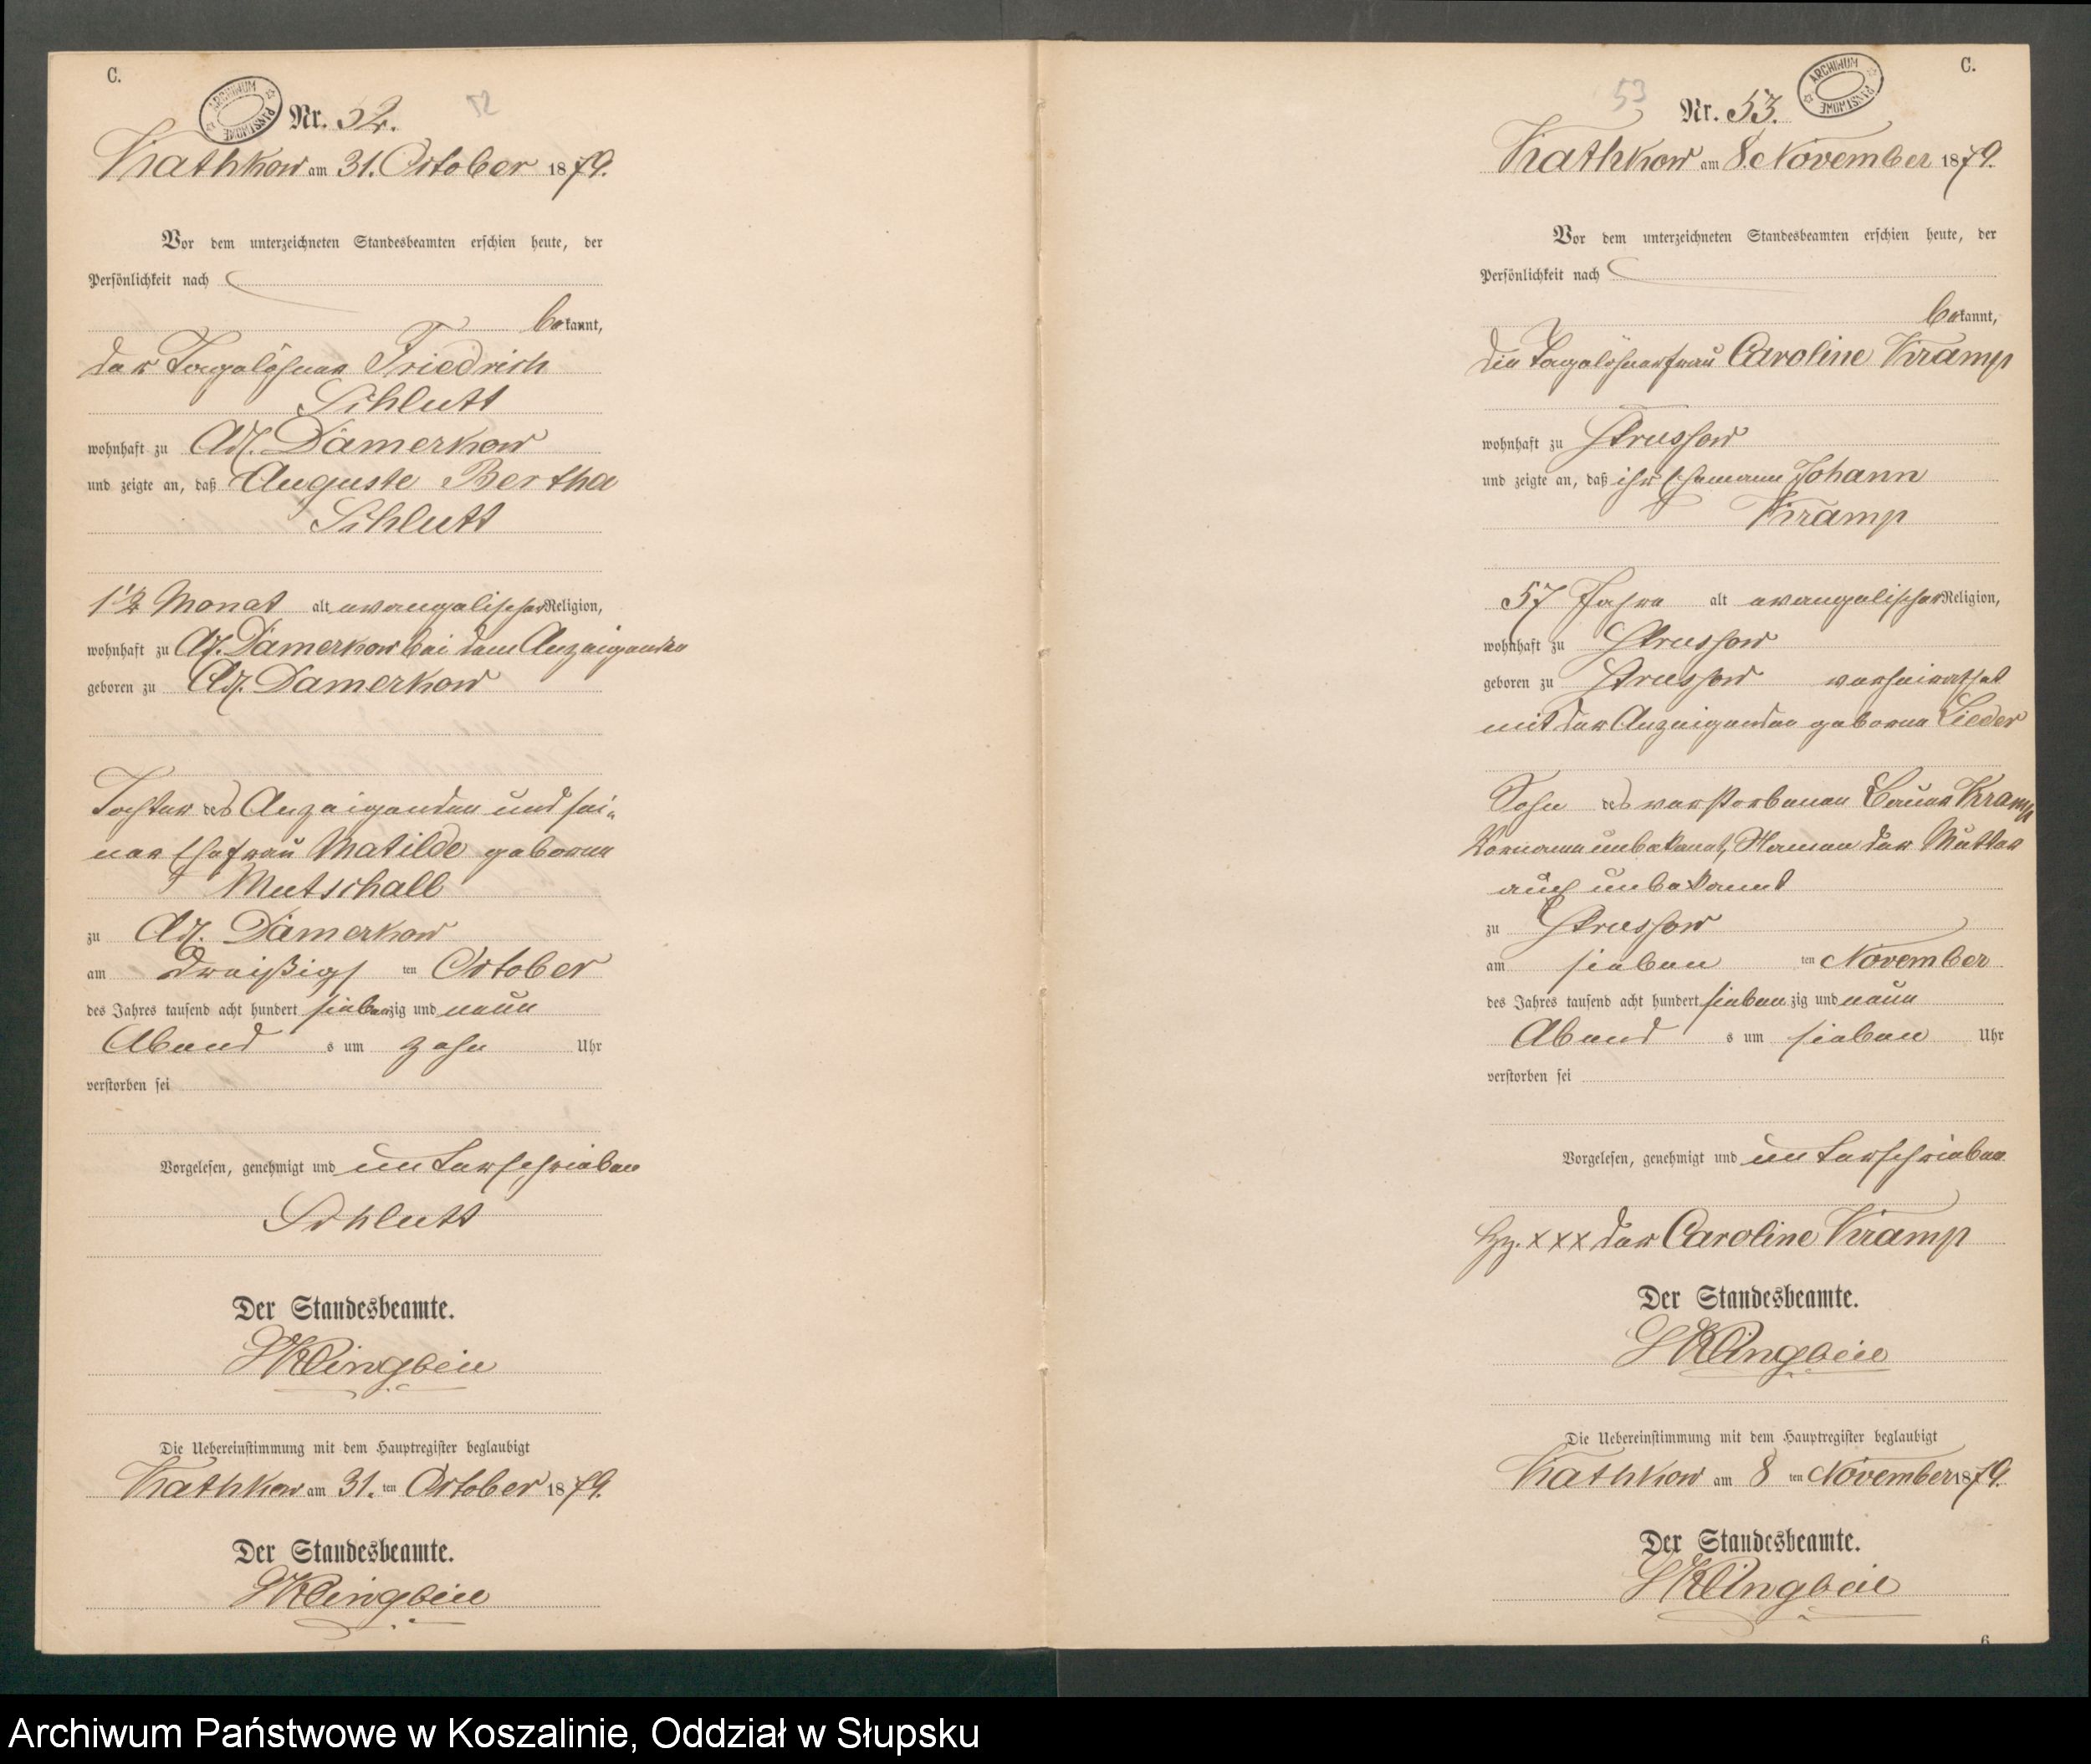 C.
ARCHIWUM PAŃSTWOWE
Nr. 52. 52
Kathkow am 31. October 1879.
Vor dem unterzeichneten Standesbeamten erschien heute, der
Persönlichkeit nach
bekannt,
der Tagelöhner Friedrich
Schlutt
wohnhaft zu Adl. Damerkow
und zeigte an, daß Auguste Bertha
Schlutt
1½ Monat alt evangelischer Religion,
wohnhaft zu Adl. Damerkow bei dem Anzeigenden
geboren zu Adl. Damerkow
Tochter des Anzeigenden und sei-
ner Ehefrau Matilde geborene
Mutschall
zu Adl. Damerkow
am dreißigs ten October
des Jahres tausend acht hundert siebenzig und neun
Abend s um zehn Uhr
verstorben sei
Vorgelesen, genehmigt und unterschrieben
Schlutt
Der Standesbeamte.
Klingbeil
Die Uebereinstimmung mit dem Hauptregister beglaubigt
Kathkow am 31. ten October 1879.
Der Standesbeamte.
Klingbeil
C.
ARCHIWUM PAŃSTWOWE
53 Nr. 53.
Kathkow am 8. November 1879.
Vor dem unterzeichneten Standesbeamten erschien heute, der
Persönlichkeit nach
bekannt,
die Tagelöhnerfrau Caroline Kramp
wohnhaft zu Strussow
und zeigte an, daß ihr Ehemann Johann
Kramp
57 Jahre alt evangelischer Religion,
wohnhaft zu Strussow
geboren zu Strussow verheirathet
mit der Anzeigenden geborne Lieder
Sohn des verstorbenen Bauer Kramp
Vorname unbekannt, Namen der Mutter
auch unbekannt
zu Strussow
am sieben ten November
des Jahres tausend acht hundert siebenzig und neun
Abend s um sieben Uhr
verstorben sei
Vorgelesen, genehmigt und unterschrieben
Hz. xxx der Caroline Kramp
Der Standesbeamte.
Klingbeil
Die Uebereinstimmung mit dem Hauptregister beglaubigt
Kathkow am 8 ten November 1879.
Der Standesbeamte.
Klingbeil
6
Archiwum Państwowe w Koszalinie, Oddział w Słupsku